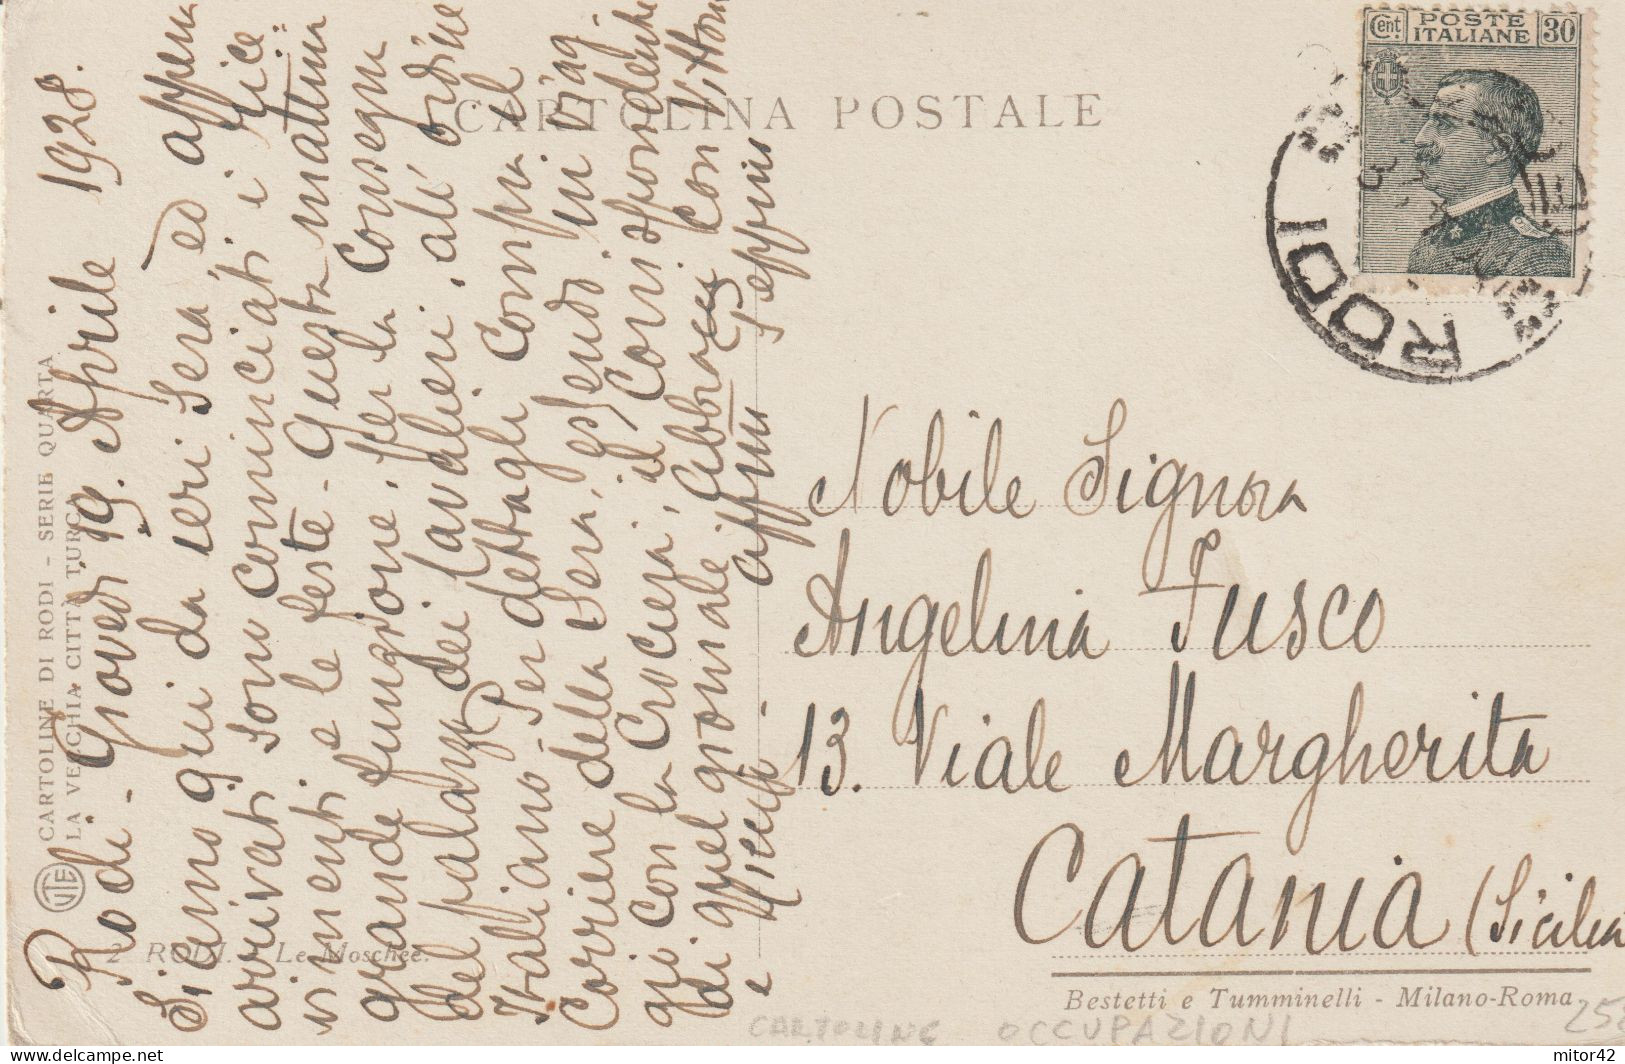 CARTOLINA POSTALE
Cent. POSTE ITALIANE 30
RODI
CARTOLINE DI RODI - SERIE QUARTA
LA VECCHIA CITTÀ TURCA
UTE
2. RODI. - Le Moschee.
Rodi - Giovedì 19. Aprile 1928.
Siamo qui da ieri sera ed appena
arrivati sono cominciati i rice=
vimenti e le feste - Questa mattina
grande funzione, per la consegna
del palazzo dei Cavalieri, all'ordine
Italiano - Per dettagli compra il
Corriere della Sera, essendo in viag
gio con la Crociera, il Corrispondente
di quel giornale, Abbracci con Vittorio
e affmo Peppino
Nobile Signora
Angelina Fusco
13. Viale Margherita
Catania (Sicilia
Bestetti e Tumminelli - Milano-Roma
CARTOLINE OCCUPAZIONI
mitor42